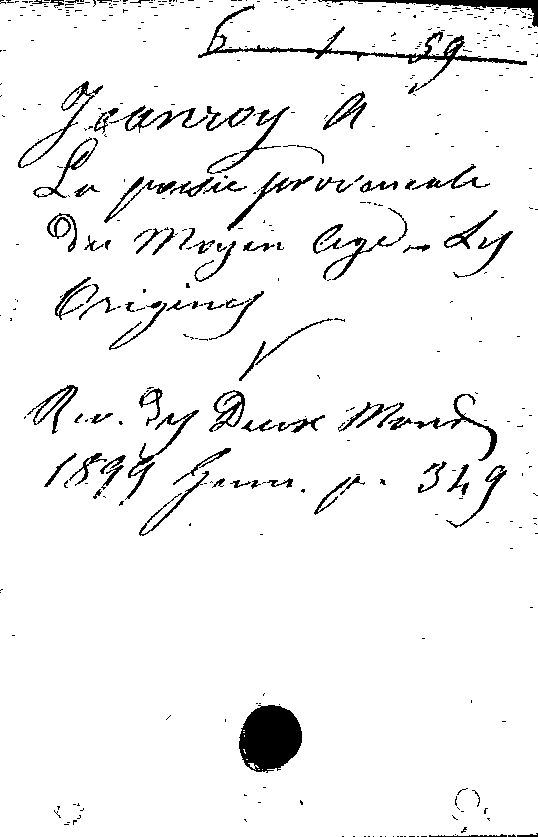 6. 1. 59
Jeanroy A
La poésie provencale
du Moyen Age - Les
Origines
Rev. des Deux Mondes
1899 Janv. p. 349